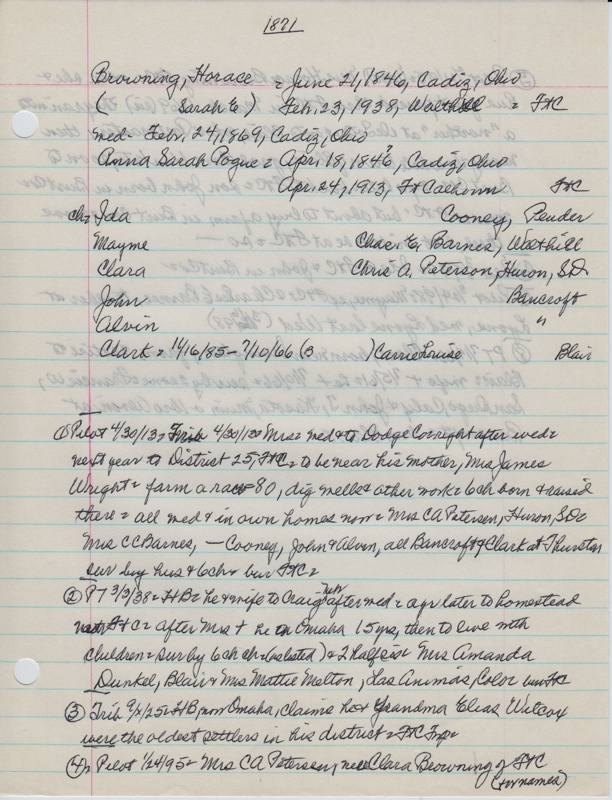 1871
Browning, Horace = June 21, 1846, Cadiz, Ohio
( Sarah E) Feb. 23, 1938, Walthill = FtC
med- Feb. 24, 1869, Cadiz, Ohio
Anna Sarah Pogue = Apr. 18, 1846?, Cadiz, Ohio
Apr. 24, 1913, Ft Calhoun FtC
ch= Ida Cooney, Pender
Mayme Chas. E. Barnes, Walthill
Clara Chris A. Peterson, Huron, S.D.
John Bancroft
Alvin "
Clark = 11/16/85 - 7/10/66 (B ) Carrie Louise Blair
① Pilot 4/30/13 = Trib 4/30/13 = Mrs = med & to Dodge Co right after wed =
next year to District 25, FtC = to be near his mother, Mrs James
Wright = farm a raw 80, dig wells & other work = 6 ch born & raised
there = all med & in own homes now = Mrs CA Petersen, Huron, SD =
Mrs CC Barnes, — Cooney, John & Alvin, all Bancroft & Clark at Thurston
sur by hus & 6 ch = bur FtC =
② PT 3/3/38 = HB = he & wife to Craig, Neb after med = a yr later to homestead
near FtC = after Mrs + he to Omaha 15 yrs, then to live with
children = sur by 6 ch (as listed) & 2 half sis = Mrs Amanda
Dunkel, Blair & Mrs Mattie Melton, Las Animas, Color bur FtC
③ Trib 9/X/25 = HB, now Omaha, claims he & Grandma Elias Wilcox
were the oldest settlers in his district = FtC Twp =
④ Pilot 1/24/95 = Mrs CA Petersen, nee Clara Browning of FtC
(no names)